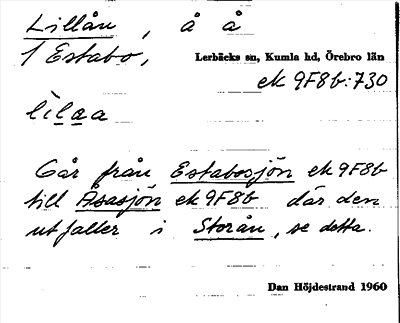 Lillån, å å
1 Estabo,
Lerbäcks sn, Kumla hd, Örebro län
ek 9F8b:730
lìlαa
Går från Estabosjön ek 9F8b
till Åsasjön ek 9F8b där den
utfaller i Storån, se detta.
Dan Höjdestrand 1960